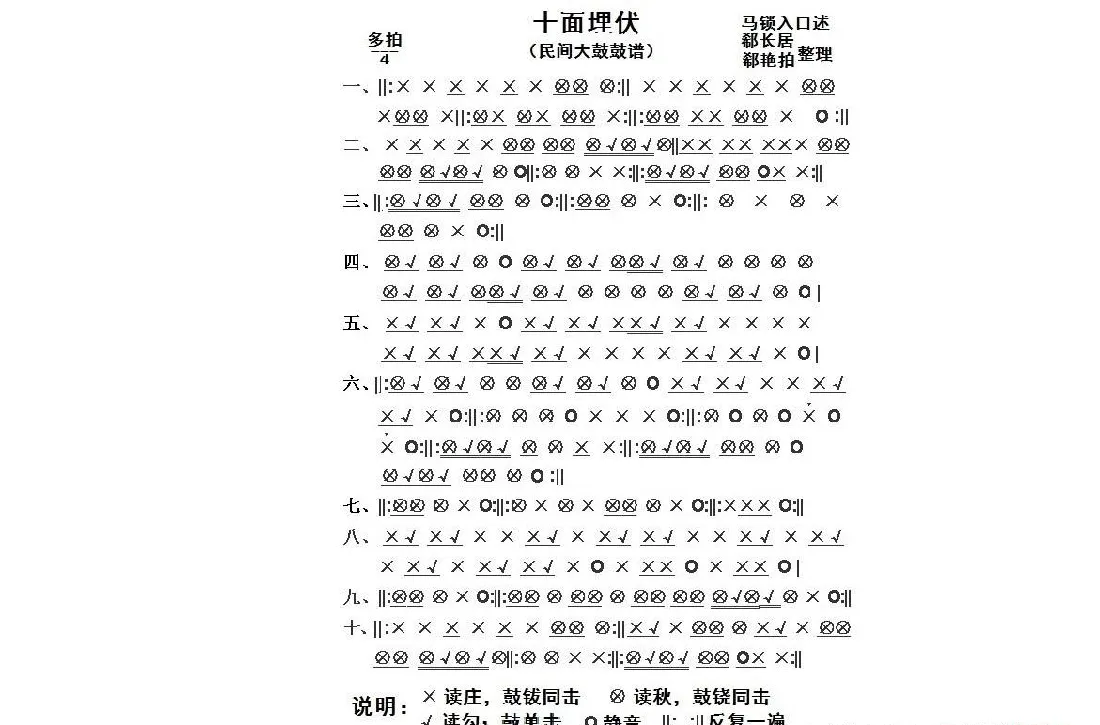 十面埋伏
(民间大鼓鼓谱)
多拍
4
马锁入口述
郗长居
郗艳拍 整理
一、||:× × × × × × ⊗⊗ ⊗:|| × × × × × × ⊗⊗
×⊗⊗ ×||:⊗× ⊗× ⊗⊗ ×:||:⊗⊗ ×× ⊗⊗ × O :||
二、 × × × × × ⊗⊗ ⊗⊗ ⊗√⊗√⊗||×× ×× ××× ⊗⊗
⊗⊗ ⊗√⊗√ ⊗ O||:⊗ ⊗ × ×:||:⊗√⊗√ ⊗⊗ O× ×:||
三、||:⊗√⊗√ ⊗⊗ ⊗ O:||:⊗⊗ ⊗ × O:||: ⊗ × ⊗ ×
⊗⊗ ⊗ × O:||
四、 ⊗√ ⊗√ ⊗ O ⊗√ ⊗√ ⊗⊗√ ⊗√ ⊗ ⊗ ⊗ ⊗
⊗√ ⊗√ ⊗⊗√ ⊗√ ⊗ ⊗ ⊗ ⊗ ⊗√ ⊗√ ⊗ O |
五、 ×√ ×√ × O ×√ ×√ ××√ ×√ × × × ×
×√ ×√ ××√ ×√ × × × × ×√ ×√ × O |
六、||:⊗√ ⊗√ ⊗ ⊗ ⊗√ ⊗√ ⊗ O ×√ ×√ × × ×√
×√ × O:||:⊗ ⊗ ⊗ O × × × O:||:⊗ O ⊗ O × O
× O:||:⊗√⊗√ ⊗ ⊗ × ×:||:⊗√⊗√ ⊗⊗ ⊗ O
⊗√⊗√ ⊗⊗ ⊗ O :||
七、||:⊗⊗ ⊗ × O:||:⊗ × ⊗ × ⊗⊗ ⊗ × O:||:××× O:||
八、 ×√ ×√ × × ×√ × ×√ ×√ × × ×√ × ×√
× ×√ × ×√ ×√ × O × ×× O × ×× O |
九、||:⊗⊗ ⊗ × O:||:⊗⊗ ⊗ ⊗⊗ ⊗ ⊗⊗ ⊗⊗ ⊗√⊗√ ⊗ × O:||
十、||:× × × × × × ⊗⊗ ⊗:||×√ × ⊗⊗ ⊗ ×√ × ⊗⊗
⊗⊗ ⊗√⊗√⊗||:⊗ ⊗ × ×:||:⊗√⊗√ ⊗⊗ O× ×:||
说明: × 读庄，鼓钹同击 ⊗ 读秋，鼓铙同击
√ 读勾；鼓单击 O 静音 ||: :||反复一遍